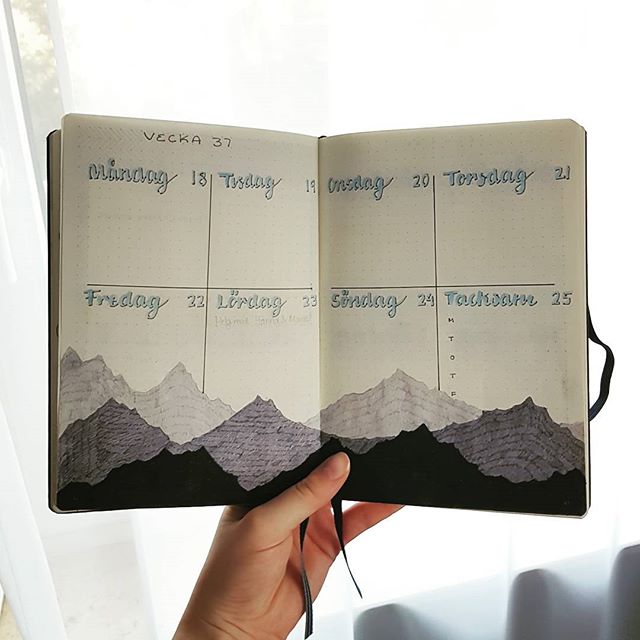 VECKA 37
Måndag 18 Tisdag 19 Onsdag 20 Torsdag 21
Fredag 22 Lördag 23 Söndag 24 Tacksam 25
M
T
O
T
F